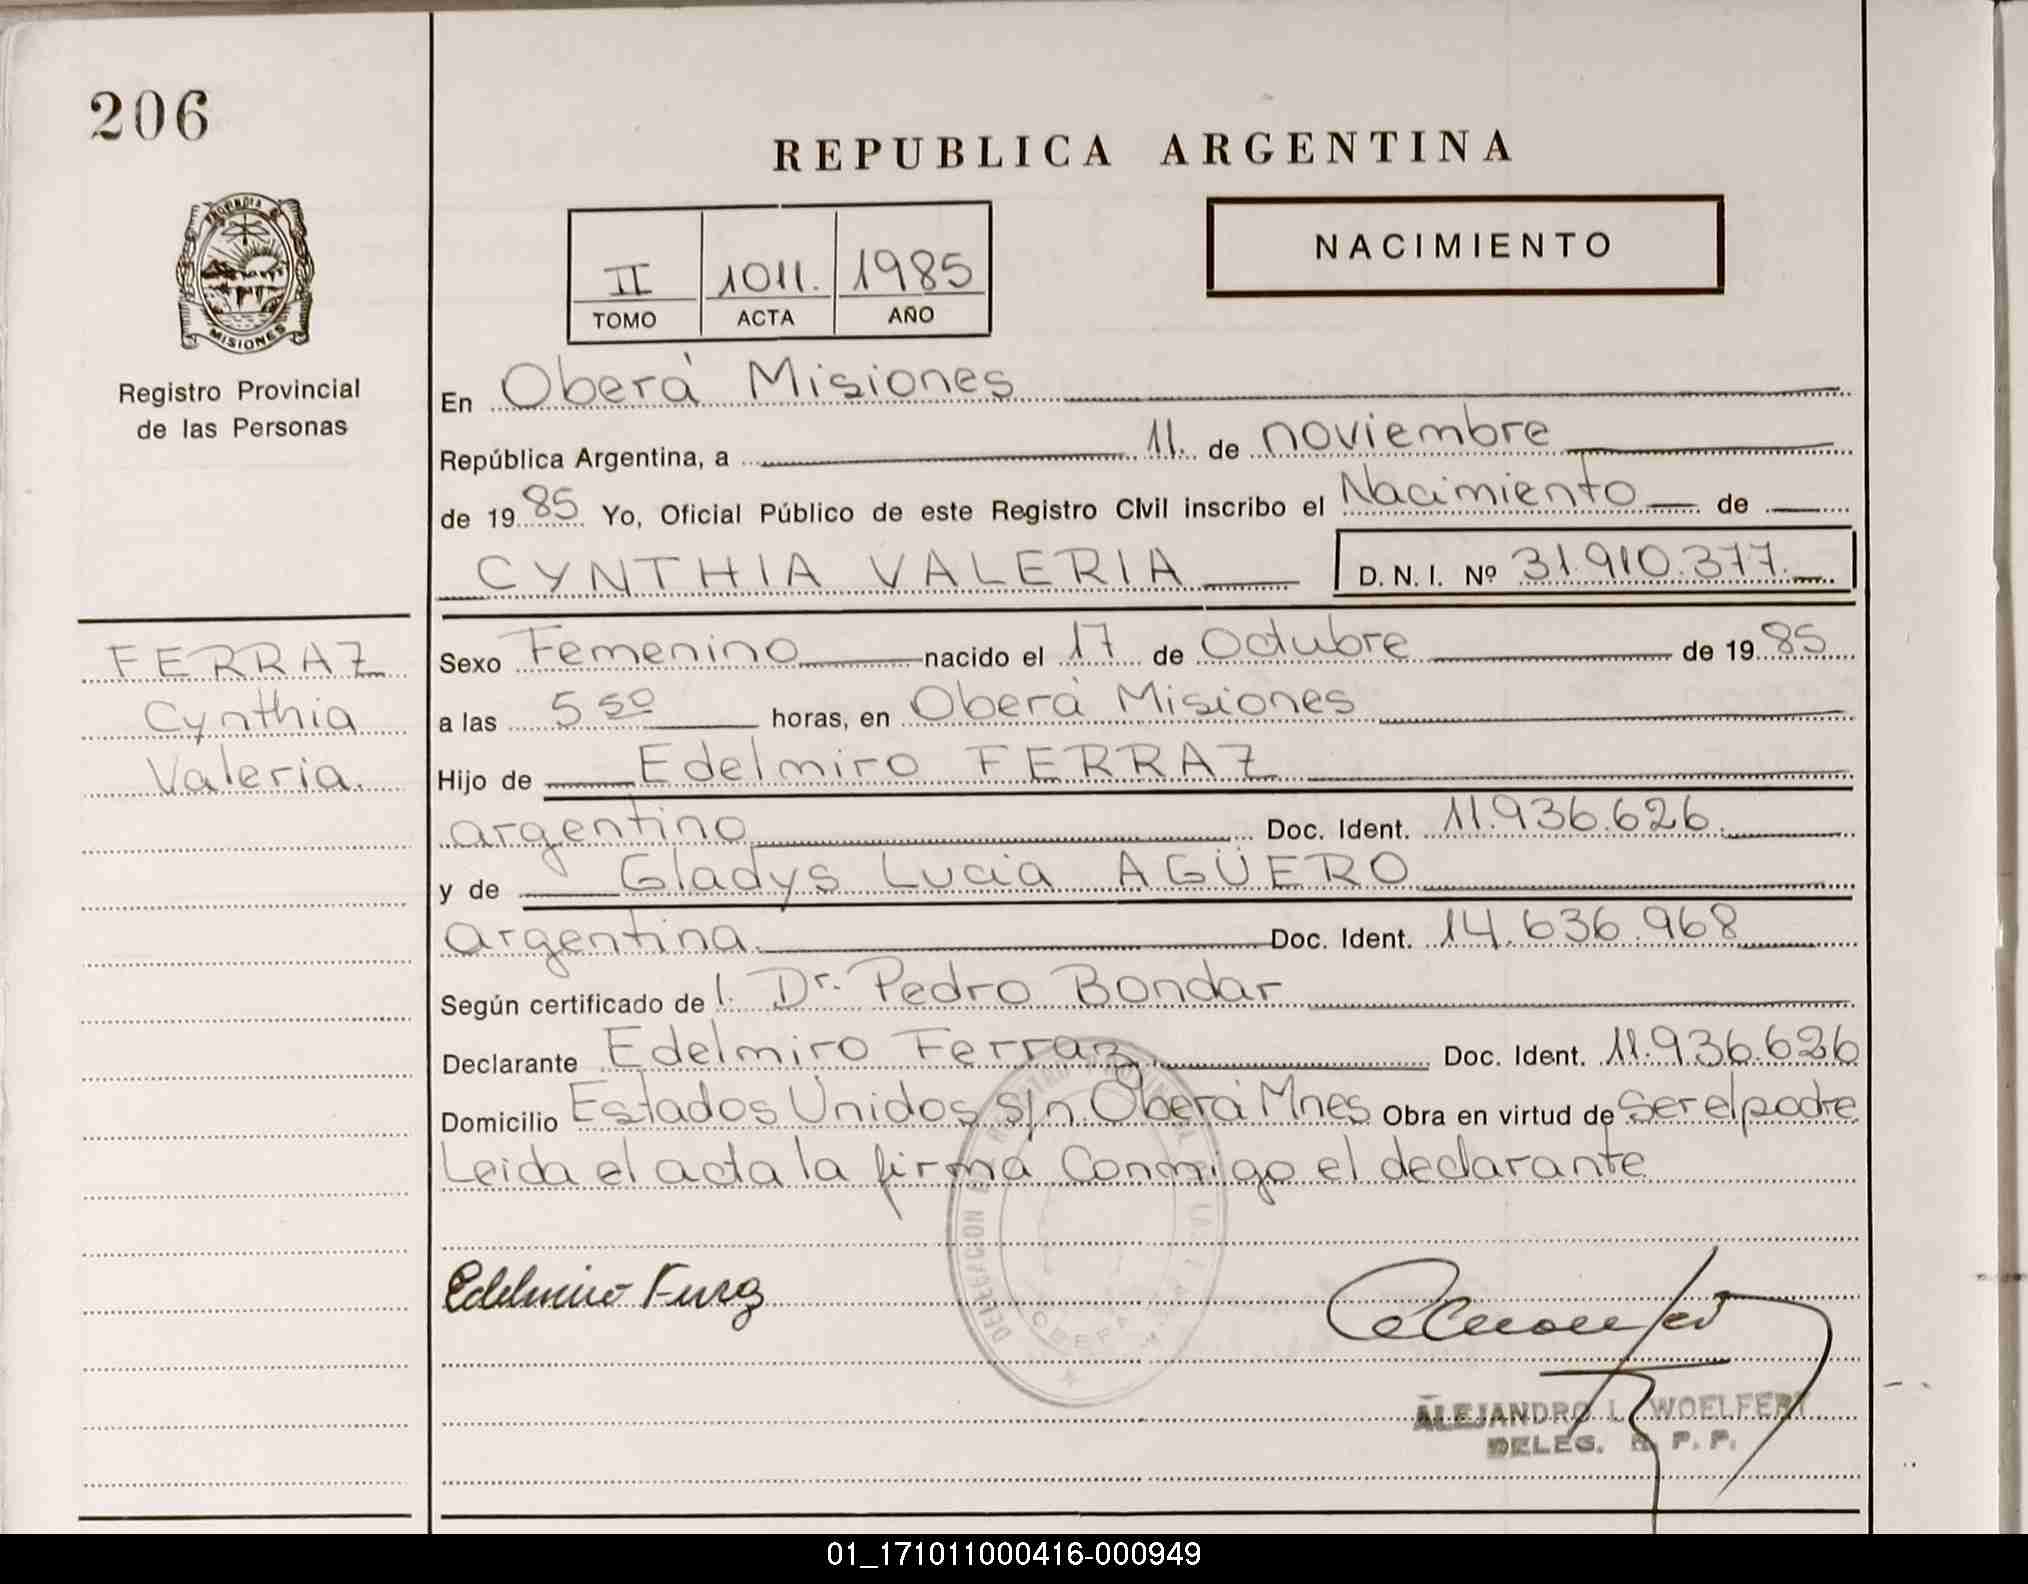 206
REPUBLICA ARGENTINA
PROVINCIA DE
MISIONES
Registro Provincial
de las Personas
II 1011. 1985
TOMO ACTA AÑO
NACIMIENTO
En Oberá Misiones
República Argentina, a 11. de noviembre
de 1985 Yo, Oficial Público de este Registro Civil inscribo el Nacimiento de
CYNTHIA VALERIA D. N. I. Nº 31.910.377.
FERRAZ
Cynthia
Valeria.
Sexo Femenino nacido el 17 de Octubre de 1985
a las 5 50 horas, en Oberá Misiones
Hijo de Edelmiro FERRAZ
argentino Doc. Ident. 11.936.626.
y de Gladys Lucia AGÜERO
argentina. Doc. Ident. 14.636.968
Según certificado de l. Dr. Pedro Bondar
Declarante Edelmiro Ferraz Doc. Ident. 11.936.626
Domicilio Estados Unidos s/n. Oberá Mnes Obra en virtud de Ser el padre
Leida el acta la firma Conmigo el declarante
DELEGACION
OBERA
Edelmiro Ferraz
ALEJANDRO L. WOELFERT
DELEG. R. P. P.
01_171011000416-000949